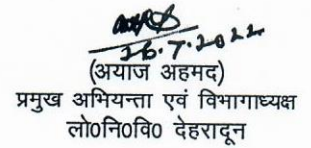 26.7.2022
(अयाज अहमद)
प्रमुख अभियन्ता एवं विभागाध्यक्ष
लो0नि0वि0 देहरादून